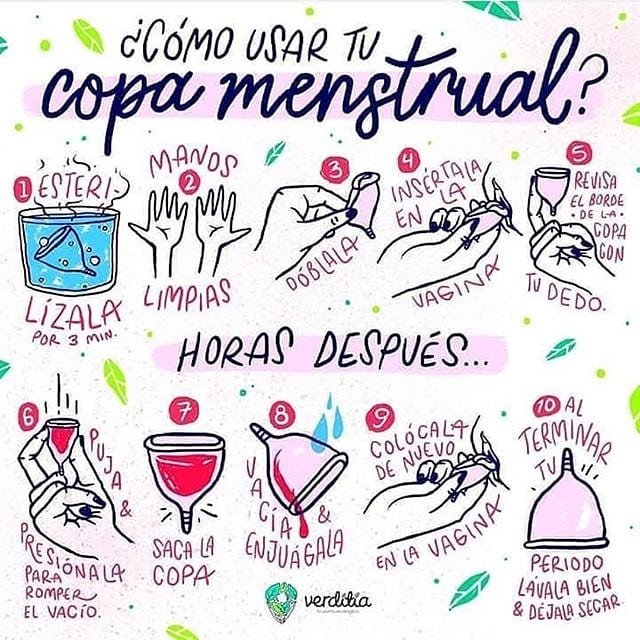 ¿CÓMO USAR TU
copa menstrual?
1 ESTERI-
LÍZALA
POR 3 MIN.
MANOS
2
LIMPIAS
3
DÓBLALA
4
INSÉRTALA
EN LA
VAGINA
5
REVISA
EL BORDE
DE LA
COPA
CON
TU DEDO.
HORAS DESPUÉS...
6
PUJA
&
PRESIÓNALA
PARA
ROMPER
EL VACÍO.
7
SACA LA
COPA
8
VACÍA &
ENJUÁGALA
9
COLÓCALA
DE NUEVO
EN LA VAGINA
10 AL
TERMINAR
TU
PERIODO
LÁVALA BIEN
& DÉJALA SECAR.
verditia